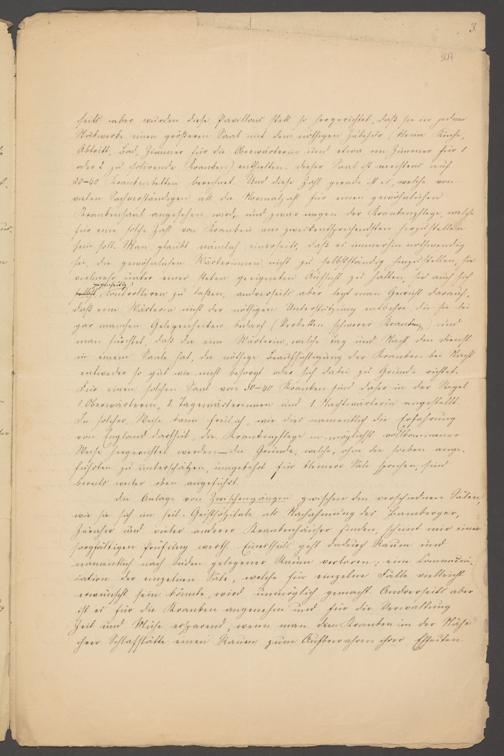 3.
seits aber würden diese Pavillons stets so hergerichtet, daß sie in jedem
Stockwerke einen größeren Saal mit dem nöthigen Zubehör (kleine Küche,
Abtritt, Bad, Zimmer für die Oberwärterin und etwa ein Zimmer für 1
oder 2 zu isolirende Kranken) enthielten. Dieser Saal ist meistens auf
30-40 Krankenbetten berechnet. Und diese Zahl gerade ist es, welche von
vielen Sachverständigen als die Normalzahl für einen gewöhnlichen
Krankensaal angesehen wird, und zwar wegen der Krankenpflege, welche
für eine solche Zahl von Kranken am zweckentsprechendsten herzustellen
sein soll. Man glaubt nämlich einerseits, daß es immerhin nothwendig
sei, die gewöhnlichen Wärterinnen nicht zu selbstständig hinzustellen, sie
vielmehr unter einer steten geeigneten Aufsicht zu halten, sie auch sich
gegenseitig
controlliren zu laßen, anderseits aber legt man Gewicht darauf,
daß eine Wärterin nicht der nöthigen Unterstützung entbehre, die sie bei
gar manchen Gelegenheiten bedarf (Umbetten schwerer Kranken), und
man fürchtet, daß da eine Wärterin, welche Tag und Nacht den Dienst
in einem Saale hat, die nöthige Beaufsichtigung der Kranken bei Nacht
entweder so gut wie nicht besorgt oder sich dabei zu Grunde richtet.
Für einen solchen Saal von 30-40 Kranken sind daher in der Regel
1 Oberwärterin, 2 Tagewärterinnen und 1 Nachtwärterin angestellt.
In solcher Weise kann freilich, wie dies namentlich die Erfahrung
von England darthut, die Krankenpflege in möglichst vollkommener
Weise hergerichtet werden — die Gründe, welche, ohne die soeben ange-
führten zu unterschätzen, umgekehrt für kleinere Säle sprechen, sind
bereits weiter oben angeführt.
Die Anlage von Zwischengängen zwischen den verschiedenen Sälen,
wie sie sich im heil. Geisthospitale als Nachahmung des Bamberger,
Züricher und vieler anderer Krankenhäuser finden, scheint mir einer
sorgfältigen Prüfung werth. Einestheils geht dadurch Raum und
namentlich nach Süden gelegener Raum verloren; eine Communi-
cation der einzelnen Säle, welche für einzelne Fälle vielleicht
erwünscht sein könnte, wird unmöglich gemacht. Anderseits aber
ist es für die Kranken angenehm und für die Verwaltung
Zeit und Mühe ersparend, wenn man dem Kranken in der Nähe
ihrer Schlafstätte einen Raum zum Aufbewahren ihrer Effecten